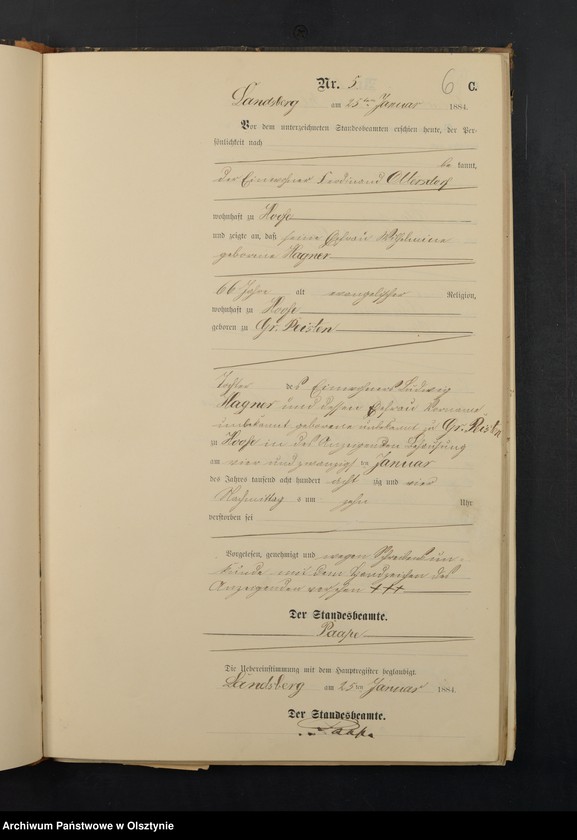 Nr. 5 6 C.
Landsberg am 25ten Januar 1884.
Vor dem unterzeichneten Standesbeamten erschien heute, der Per-
sönlichkeit nach
be kannt,
der Einwohner Ferdinand Ottersdorf
wohnhaft zu Hoofe
und zeigte an, daß seine Ehefrau Wilhelmine
geborene Wagner
66 Jahre alt evangelischer Religion,
wohnhaft zu Hoofe
geboren zu Gr. Peisten
Tochter des Einwohners Ludwig
Wagner und dessen Ehefrau Vorname
unbekannt geborene unbekannt zu Gr. Peisten
zu Hoofe in des Anzeigenden Behausung
am vier und zwanzigsten Januar
des Jahres tausend acht hundert acht zig und vier
Nachmittag s um zehn Uhr
verstorben sei
Vorgelesen, genehmigt und wegen Schreibensun-
kunde mit dem Handzeichen des
Anzeigenden versehen +++
Der Standesbeamte.
Paape
Die Uebereinstimmung mit dem Hauptregister beglaubigt.
Landsberg am 25ten Januar 1884.
Der Standesbeamte.
Paape
Archiwum Państwowe w Olsztynie